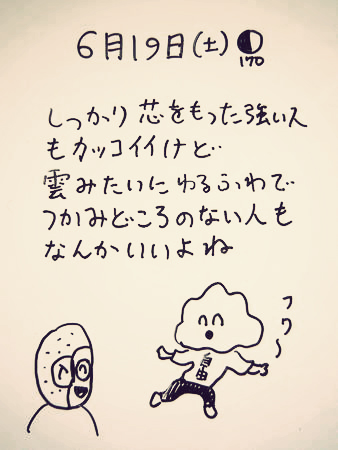 6月19日(土)
170
しっかり芯をもった強い人
もカッコイイけど
雲みたいにゆるふわで
つかみどころのない人も
なんかいいよね
フワ〜
自由